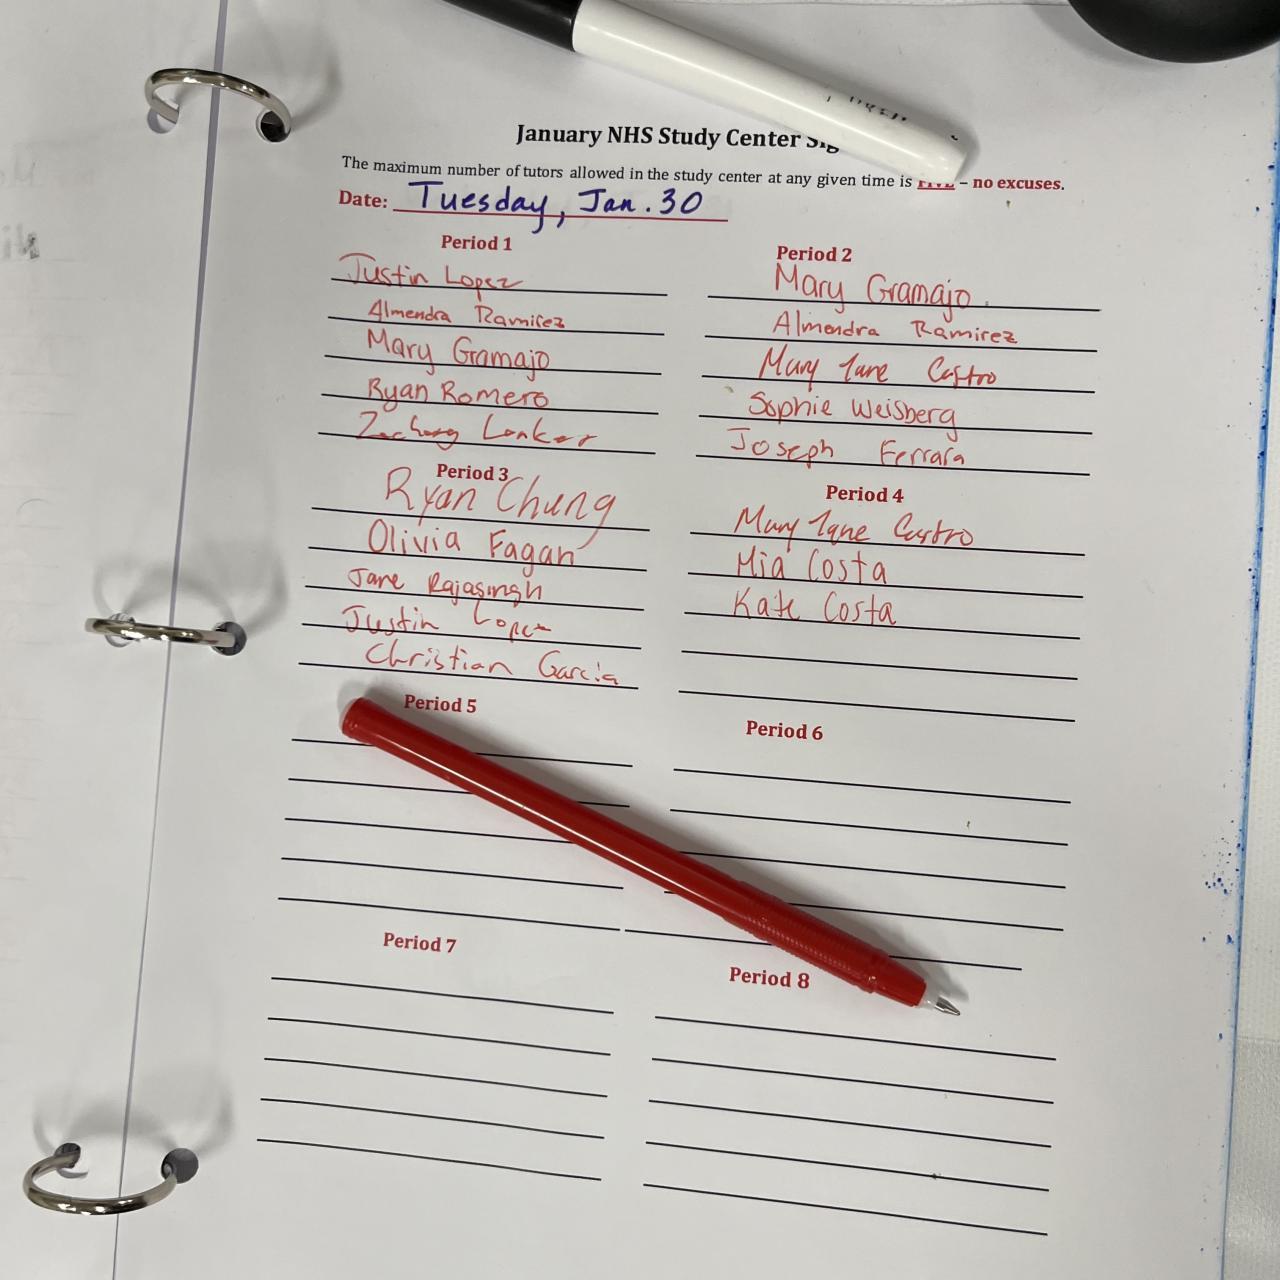 January NHS Study Center Sig
The maximum number of tutors allowed in the study center at any given time is FIVE – no excuses.
Date: Tuesday, Jan. 30
Period 1
Justin Lopez
Almendra Ramirez
Mary Gramajo
Ryan Romero
Zachary Lonker
Period 2
Mary Gramajo
Almendra Ramirez
Mary Jane Castro
Sophie Weisberg
Joseph Ferrara
Period 3
Ryan Chung
Olivia Fagan
Jane Rajasingh
Justin Lopez
Christian Garcia
Period 4
Mary Jane Castro
Mia Costa
Kate Costa
Period 5
Period 6
Period 7
Period 8